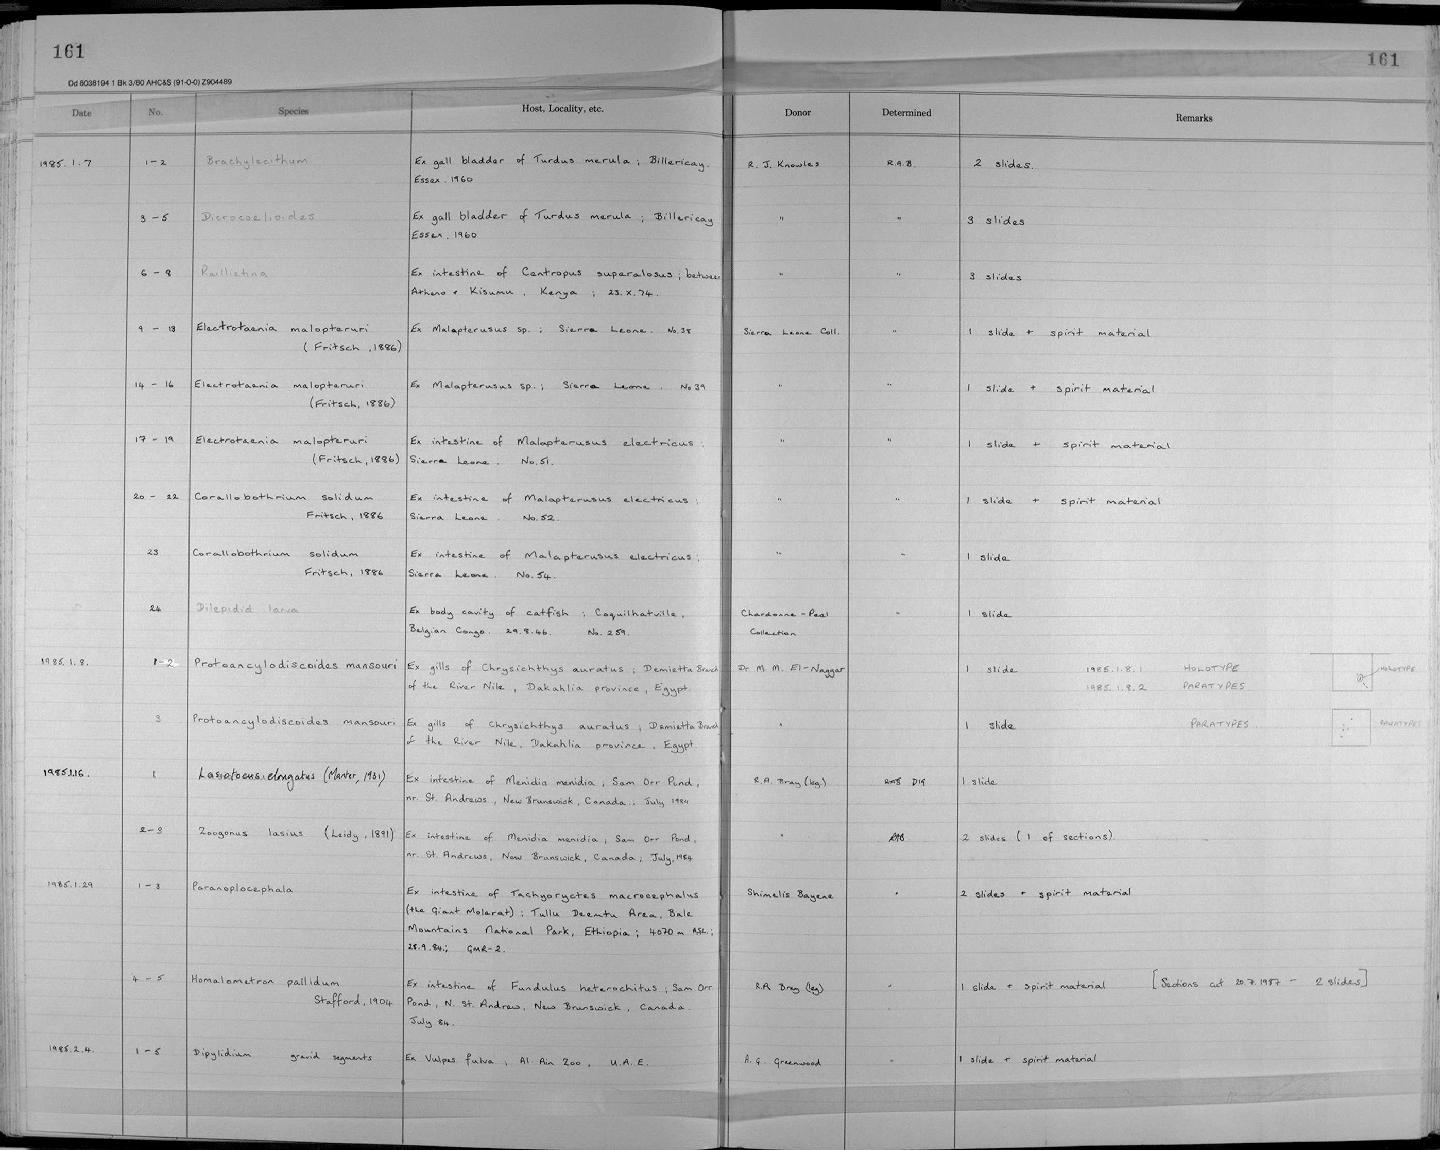 161
161
Dd 8038194 1 Bk 3/80 AHC&S (91-0-0) Z904489
Date No. Species Host, Locality, etc. Donor Determined Remarks
1985.1.7 1-2 Brachylecithum Ex gall bladder of Turdus merula ; Billericay. R. J. Knowles R.A.B. 2 slides.
Essex. 1960
3-5 Dicrocoelioides Ex gall bladder of Turdus merula ; Billericay " " 3 slides
Essex. 1960
6-8 Raillietina Ex intestine of Centropus superalosus ; between " " 3 slides
Athero + Kisumu, Kenya ; 23.X.74.
9-13 Electrotaenia malopteruri Ex Malapterusus sp. ; Sierra Leone. No.38 Sierra Leone Coll. " 1 slide + spirit material
(Fritsch, 1886)
14-16 Electrotaenia malopteruri Ex Malapterusus sp. ; Sierra Leone. No 39 " " 1 slide + spirit material
(Fritsch, 1886)
17-19 Electrotaenia malopteruri Ex intestine of Malapterusus electricus ; " " 1 slide + spirit material
(Fritsch, 1886) Sierra Leone. No.51.
20-22 Corallobothrium solidum Ex intestine of Malapterusus electricus ; " " 1 slide + spirit material
Fritsch, 1886 Sierra Leone. No.52.
23 Corallobothrium solidum Ex intestine of Malapterusus electricus ; " " 1 slide
Fritsch, 1886 Sierra Leone. No.54.
24 Dilepidid larva Ex body cavity of catfish ; Coquilhatville, Chardonne-Peal " 1 slide
Belgian Congo. 29.8.46. No. 259. Collection
1985.1.8. 1-2 Protoancylodiscoides mansouri Ex gills of Chrysichthys auratus ; Demietta Branch Dr. M. M. El-Naggar 1 slide 1985.1.8.1 HOLOTYPE HOLOTYPE
of the River Nile, Dakahlia province, Egypt. 1985.1.8.2 PARATYPES
3 Protoancylodiscoides mansouri Ex gills of Chrysichthys auratus ; Demietta Branch " 1 slide PARATYPES PARATYPES
of the River Nile, Dakahlia province, Egypt.
1985.1.16. 1 Lasiotocus elongatus (Manter, 1931) Ex intestine of Menidia menidia ; Sam Orr Pond, R.A. Bray (leg.) RAB DIG 1 slide
nr. St. Andrews, New Brunswick, Canada ; July 1984
2-3 Zoogonus lasius (Leidy, 1891) Ex intestine of Menidia menidia ; Sam Orr Pond, " RAB 2 slides (1 of sections)
nr. St. Andrews, New Brunswick, Canada ; July, 1984
1985.1.29 1-3 Paranoplocephala Ex intestine of Tachyoryctes macrocephalus Shimelis Bayene " 2 slides + spirit material
(the Giant Molerat) ; Tullu Deemtu Area, Bale
Mountains National Park, Ethiopia ; 4070 m ASL ;
28.9.84. ; GMR-2.
4-5 Homalometron pallidum Ex intestine of Fundulus heterochitus ; Sam Orr R.A. Bray (leg) " 1 slide + spirit material [Sections cut 20.7.1987 - 2 slides]
Stafford, 1904 Pond, N. St. Andrew, New Brunswick, Canada.
July 84.
1985.2.4. 1-5 Dipylidium gravid segments Ex Vulpes fulva ; Al Ain Zoo, U.A.E. A. G. Greenwood " 1 slide + spirit material